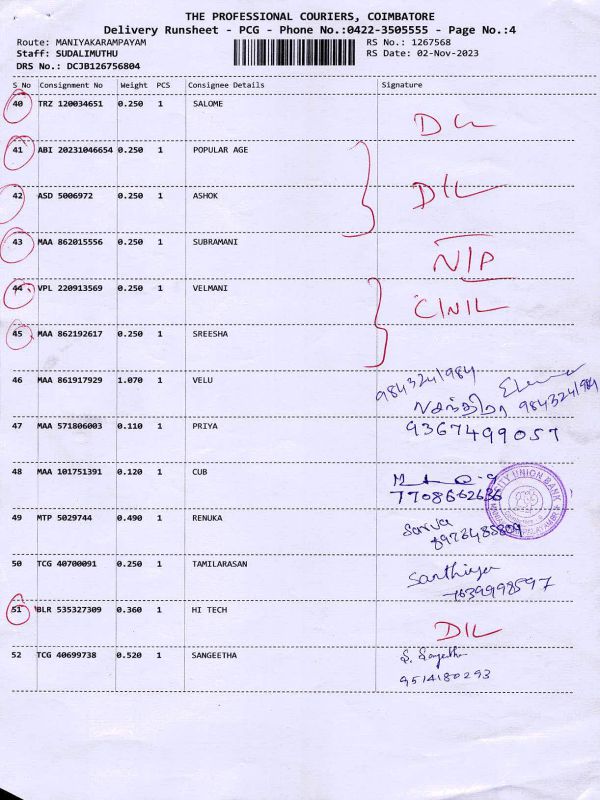 THE PROFESSIONAL COURIERS, COIMBATORE
Delivery Runsheet - PCG - Phone No.:0422-3505555 - Page No.:4
Route: MANIYAKARAMPAYAM RS No.: 1267568
Staff: SUDALIMUTHU RS Date: 02-Nov-2023
DRS No.: DCJB126756804
S No Consignment No Weight PCS Consignee Details Signature
40 TRZ 120034651 0.250 1 SALOME
41 ABI 20231046654 0.250 1 POPULAR AGE
42 ASD 5006972 0.250 1 ASHOK DIL
43 MAA 862015556 0.250 1 SUBRAMANI N/P
44 VPL 220913569 0.250 1 VELMANI
45 MAA 862192617 0.250 1 SREESHA
46 MAA 861917929 1.070 1 VELU 9843241984
9843241984
47 MAA 571806003 0.110 1 PRIYA 9367499057
48 MAA 101751391 0.120 1 CUB
7708662636
CITY UNION BANK
49 MTP 5029744 0.490 1 RENUKA
50 TCG 40700091 0.250 1 TAMILARASAN Santhiya
51 BLR 535327309 0.360 1 HI TECH DIL
52 TCG 40699738 0.520 1 SANGEETHA S. Sangeetha
9514180293